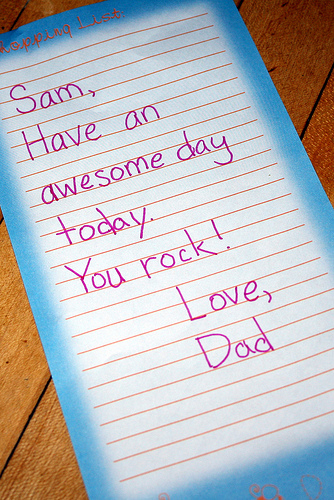 Shopping List:
Sam,
Have an
awesome day
today.
You rock!
Love,
Dad